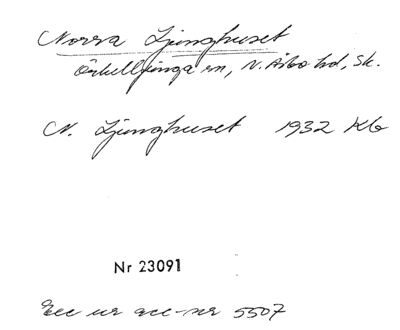 Norra Ljunghuset
Örkelljunga sn, N. Åsbo hd, Sk.
N. Ljunghuset 1932 Kb
Nr 23091
Exc ur acc-nr 5507